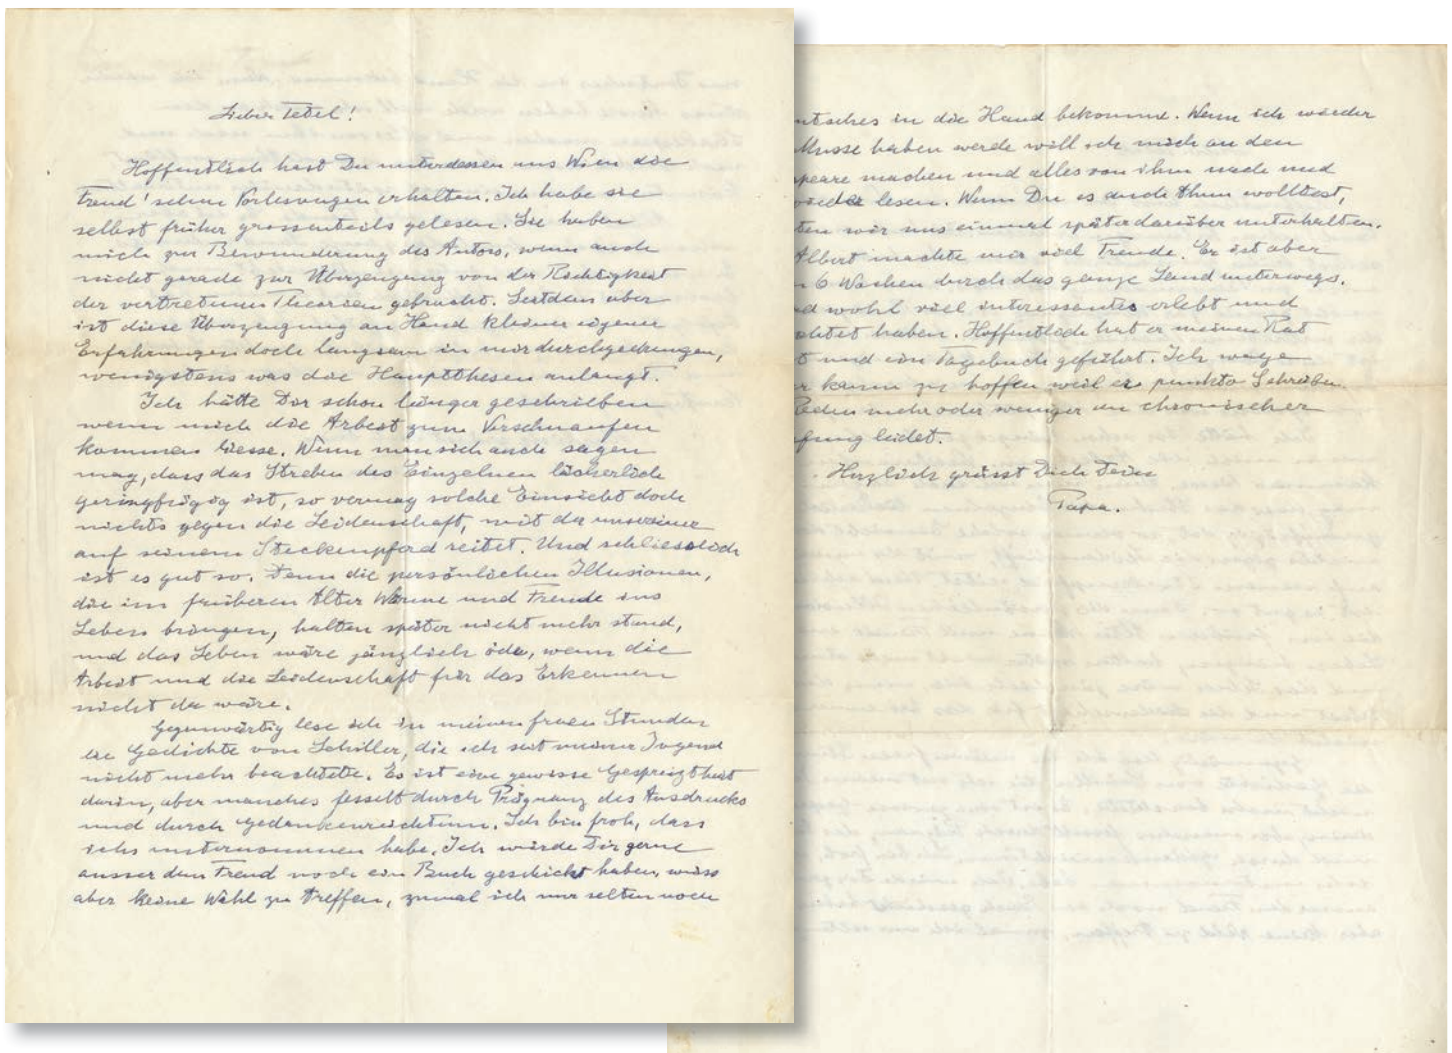 Lieber Tetel!
Hoffentlich hast Du unterdessen aus Wien die
Freud'schen Vorlesungen erhalten. Ich habe sie
selbst früher grossenteils gelesen. Sie haben
mich zur Bewunderung des Autors, wenn auch
nicht gerade zur Überzeugung von der Richtigkeit
der vertretenen Theorien gebracht. Seitdem aber
ist diese Überzeugung an Hand kleiner eigener
Erfahrungen doch langsam in mir durchgedrungen,
wenigstens was die Hauptthesen anlangt.
Ich hätte Dir schon länger geschrieben
wenn mich die Arbeit zum Verschnaufen
kommen liesse. Wenn man sich auch sagen
mag, dass das Streben des Einzelnen lächerlich
geringfügig ist, so vermag solche Einsicht doch
nichts gegen die Leidenschaft, mit der unsereiner
auf seinem Steckenpferd reitet. Und schliesslich
ist es gut so. Denn die persönlichen Illusionen,
die im früheren Alter Wärme und Freude ins
Leben bringen, halten später nicht mehr stand,
und das Leben wäre gänzlich öde, wenn die
Arbeit und die Leidenschaft für das Erkennen
nicht da wäre.
Gegenwärtig lese ich in meinen freien Stunden
die Gedichte von Schiller, die ich seit meiner Jugend
nicht mehr beachtete. Es ist eine gewisse Gespreiztheit
darin, aber manches fesselt durch Prägnanz des Ausdrucks
und durch Gedankenreichtum. Ich bin froh, dass
ichs unternommen habe. Ich würde Dir gerne
ausser dem Freud noch ein Buch geschickt haben, weiss
aber keine Wahl zu treffen, zumal ich nur selten noch
utsches in die Hand bekomme. Wenn ich wieder
Musse haben werde will ich mich an den
peare machen und alles von ihm nach und
wieder lesen. Wenn Du es auch thun wolltest,
ten wir uns einmal später darüber unterhalten.
Albert machte mir viel Freude. Er ist aber
n 6 Wochen durch das ganze Land unterwegs.
d wohl viel interessantes erlebt und
achtet haben. Hoffentlich hat er meinen Rat
t und ein Tagebuch geführt. Ich wage
r kaum zu hoffen weil er punkto Schreiben
Reden mehr oder weniger an chronischer
fung leidet.
Herzlich grüsst Dich Dein
Papa.